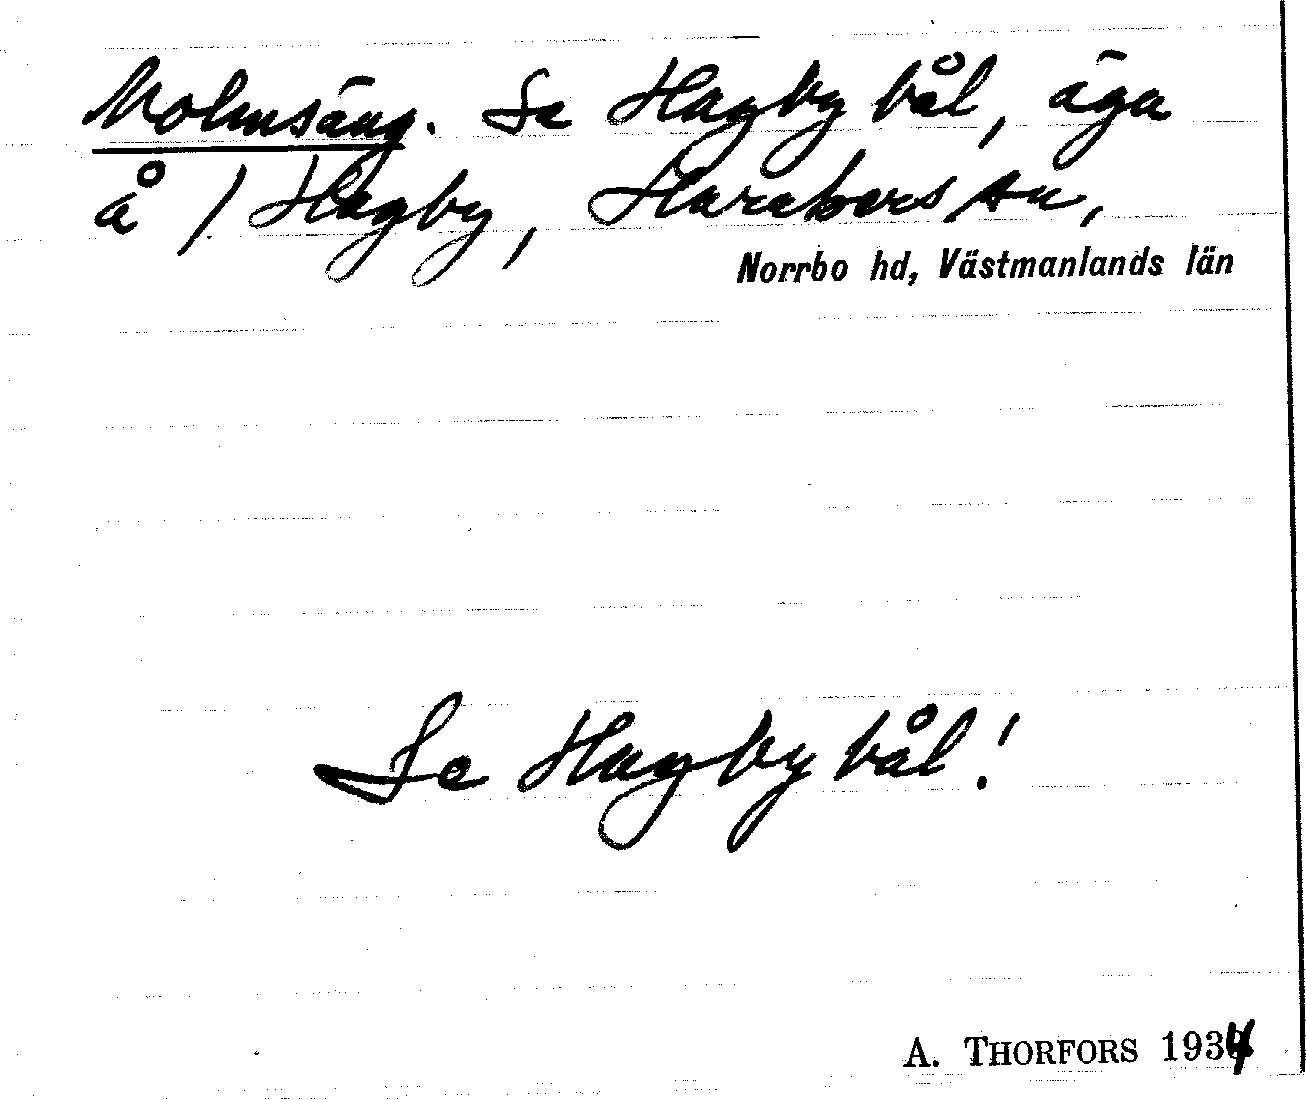 Molmsäng. Se Hagby bål, äga
å / Hagby, Harakers sn,
Norrbo hd, Västmanlands län
Se Hagby bål!
A. THORFORS 1934